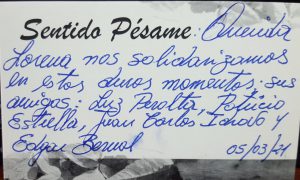 Sentido Pésame: Querida
Lorena nos solidarizamos
en estos duros momentos. sus
amigos: Luz Peralta, Patricio
Estrella, Juan Carlos y
Edgar Bernal 05/03/21